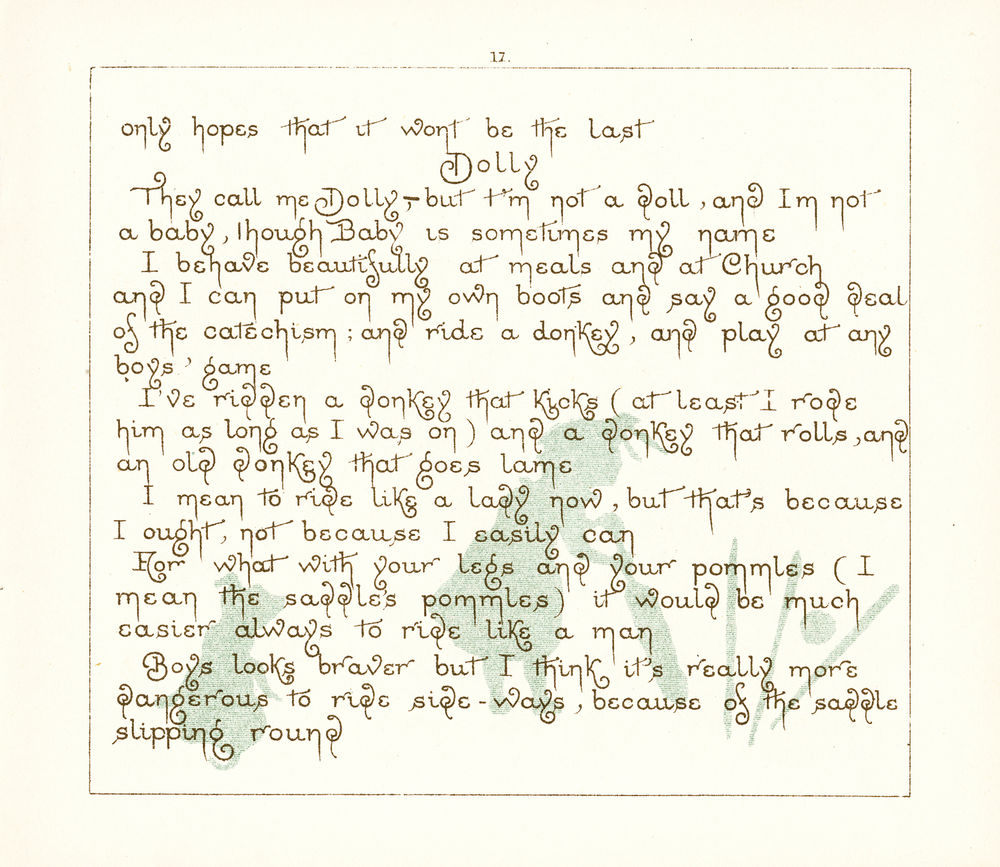 17.
only hopes that it wont be the last
Dolly
They call me Dolly,-but I'm not a doll, and Im not
a baby, though Baby is sometimes my name
I behave beautifully at meals and at Church
and I can put on my own boots and say a good deal
of the catechism; and ride a donkey, and play at any
boys' game
I've ridden a donkey that kicks (at least I rode
him as long as I was on) and a donkey that rolls, and
an old donkey that goes lame
I mean to ride like a lady now, but that's because
I ought, not because I easily can
For what with your legs and your pommles (I
mean the saddles pommles) it would be much
easier always to ride like a man
Boys looks braver but I think it's really more
dangerous to ride side-ways, because of the saddle
slipping round